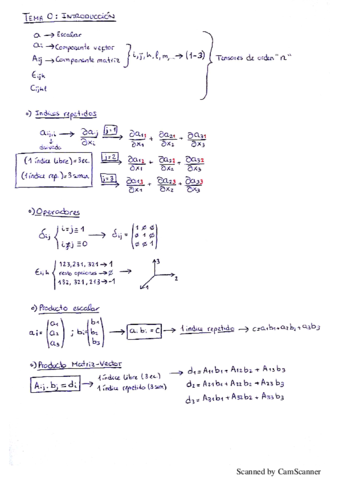 TEMA 0: INTRODUCCIÓN
a → Escalar
ai → Componente vector
Aij → Componente matriz
i, j, k, l, m, ... → (1-3)
Tensores de orden "n"
Eijk
Cijkl
o) Indices repetidos
aij,i → ∂aij/∂xi
derivada
j=1 → ∂a11/∂x1 + ∂a21/∂x2 + ∂a31/∂x3
(1 índice libre) = 3 ec.
(1 índice rep.) = 3 suma
j=2 → ∂a12/∂x1 + ∂a22/∂x2 + ∂a32/∂x3
j=3 → ∂a13/∂x1 + ∂a23/∂x2 + ∂a33/∂x3
o) Operadores
δij { i=j ≡ 1
i≠j ≡ 0
→ δij = (1 0 0
0 1 0
0 0 1)
Eijk { 123, 231, 321 → 1
resto opciones → 0
132, 321, 213 → -1
3
2
1
o) Producto escalar
ai = (a1 a2 a3) ; bi = (b1 b2 b3) → ai bi = c → 1 índice repetido → c = a1b1 + a2b2 + a3b3
o) Producto Matriz-Vector
Aij · bj = di
1 índice libre (3 ec)
1 índice repetido (3 sum)
d1 = A11b1 + A12b2 + A13b3
d2 = A21b1 + A22b2 + A23b3
d3 = A31b1 + A32b2 + A33b3
Scanned by CamScanner